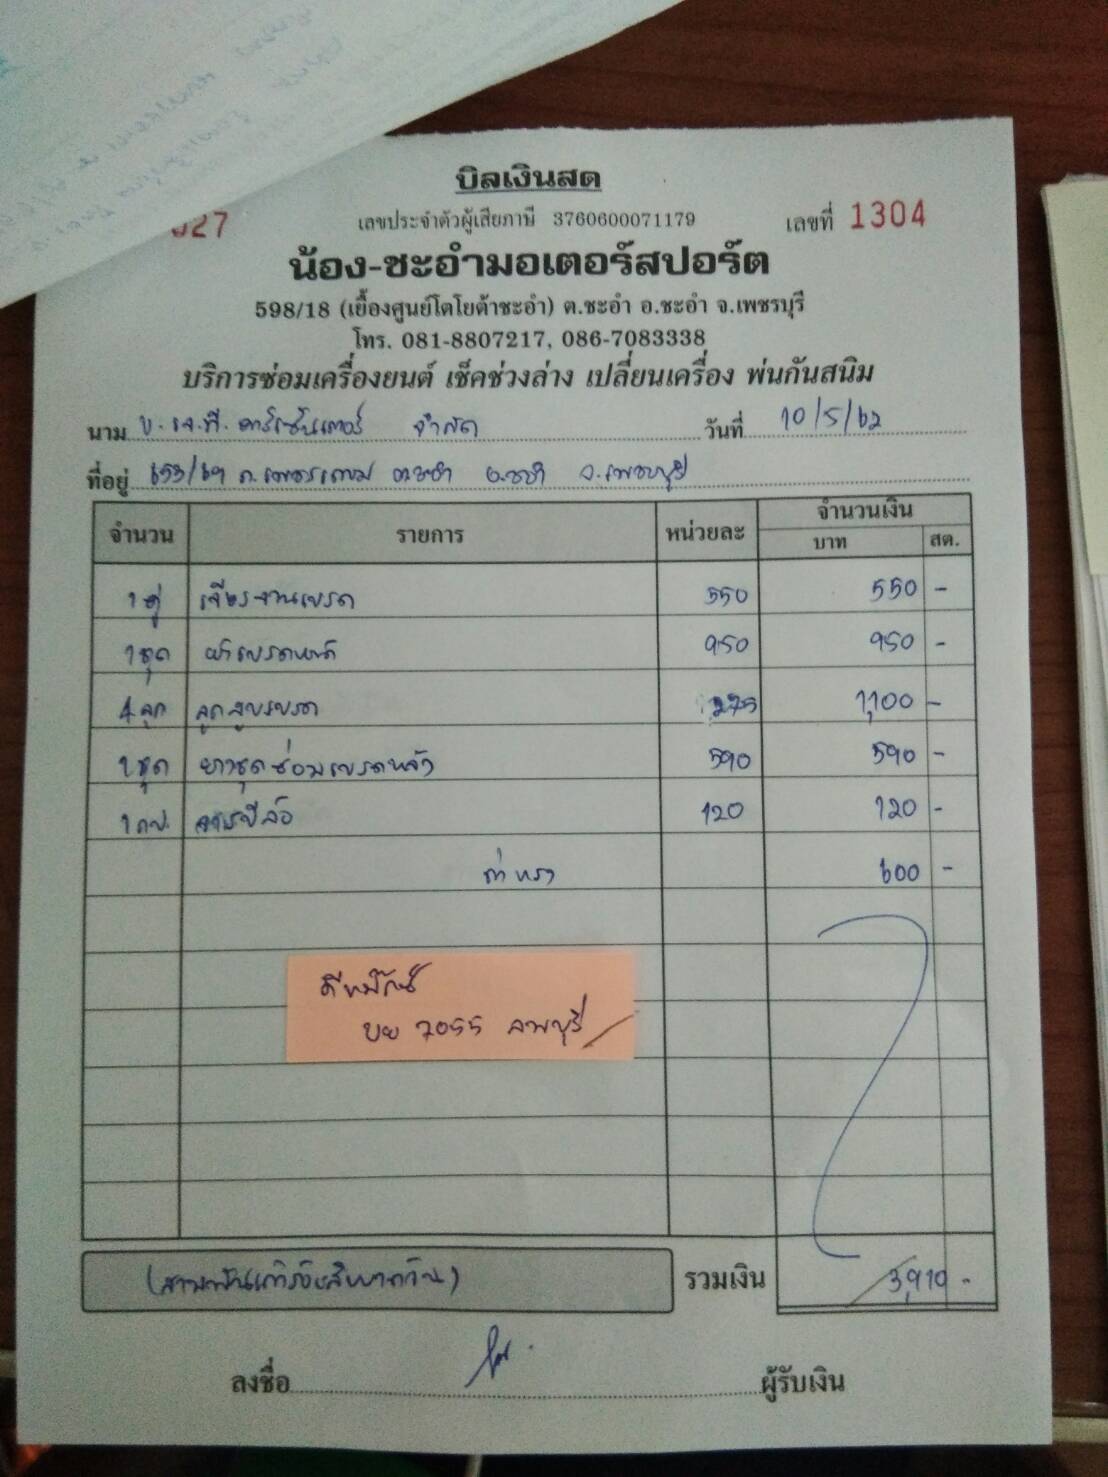 บิลเงินสด
027 เลขประจำตัวผู้เสียภาษี 3760600071179 เลขที่ 1304
น้อง-ชะอำมอเตอร์สปอร์ต
598/18 (เยื้องศูนย์โตโยต้าชะอำ) ต.ชะอำ อ.ชะอำ จ.เพชรบุรี
โทร. 081-8807217, 086-7083338
บริการซ่อมเครื่องยนต์ เช็คช่วงล่าง เปลี่ยนเครื่อง พ่นกันสนิม
นาม บ. เจ.ที. คาร์เซ็นเตอร์ จำกัด วันที่ 10/5/62
ที่อยู่ 653/69 ถ.เพชรเกษม ต.ชะอำ อ.ชะอำ จ.เพชรบุรี
จำนวน รายการ หน่วยละ จำนวนเงิน
บาท สต.
1 คู่ เจียรจานเบรค 550 550 -
1 ชุด ผ้าเบรคหน้า 950 950 -
4 ลูก ลูกสูบเบรค 275 1,100 -
1 ชุด ยางชุดซ่อมเบรคหลัง 590 590 -
1 กป. จารบีล้อ 120 120 -
ค่าแรง 600 -
ดีแม็กซ์
บย 7055 ลพบุรี
(สามพันเก้าร้อยสิบบาทถ้วน) รวมเงิน 3,910 -
ลงชื่อ ผู้รับเงิน